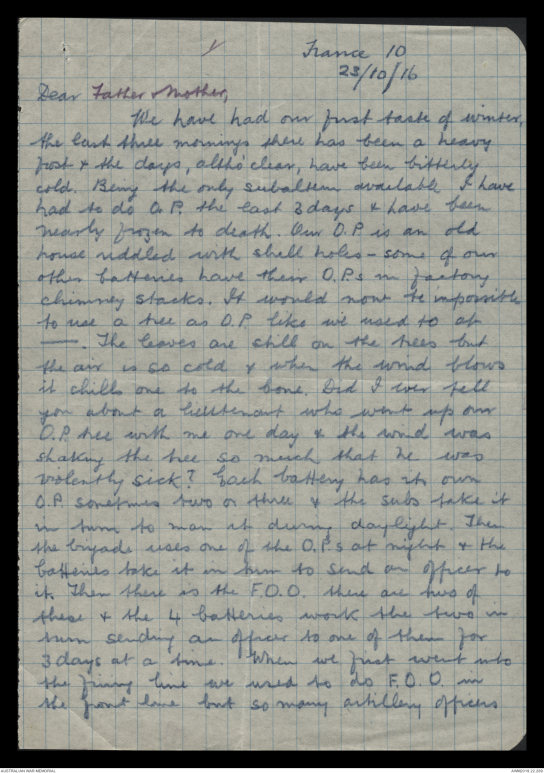 France 10
23/10/16
Dear Father & Mother,
We have had our first taste of winter,
the last three mornings there has been a heavy
frost & the days, altho' clear, have been bitterly
cold. Being the only subaltern available I have
had to do O.P. the last 3 days & have been
nearly frozen to death. Our O.P is an old
house riddled with shell holes – some of our
other batteries have their O.P.s in factory
chimney stacks. It would now be impossible
to use a tree as O.P. like we used to at
——. The leaves are still on the trees but
the air is so cold & when the wind blows
it chills one to the bone. Did I ever tell
you about a lieutenant who went up our
O.P. tree with me one day & the wind was
shaking the tree so much that he was
violently sick? Each battery has its own
O.P sometimes two or three & the subs take it
in turn to man it during daylight. Then
the brigade uses one of the O.P.s at night & the
batteries take it in turn to send an officer to
it. Then there is the F.O.O. there are two of
these & the 4 batteries work the two in
turn sending an officer to one of them for
3 days at a time. When we first went into
the firing line we used to do F.O.O in
the front line but so many artillery officers
AUSTRALIAN WAR MEMORIAL